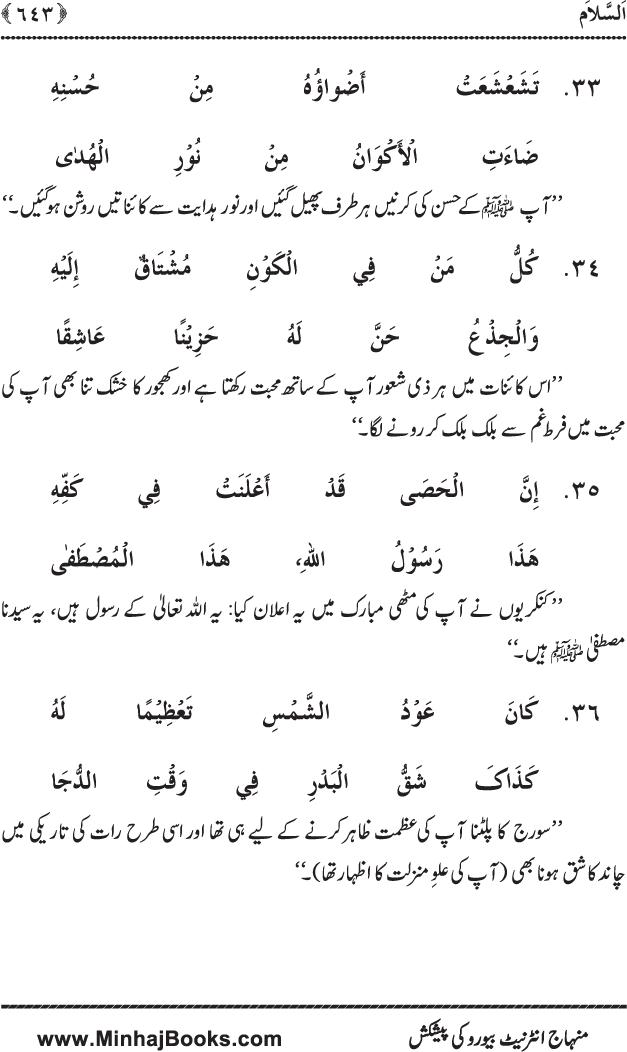 اَلسَّلاَم ﴿٦٤٣﴾
٣٣. تَشَعْشَعَتْ أَضْوَاؤُهُ مِنْ حُسْنِهِ
ضَاءَتِ الْأَكْوَانُ مِنْ نُوْرِ الْهُدٰى
’’آپ ﷺ کے حسن کی کرنیں ہر طرف پھیل گئیں اور نور ہدایت سے کائناتیں روشن ہوگئیں۔‘‘
٣٤. كُلُّ مَنْ فِي الْكَوْنِ مُشْتَاقٌ إِلَيْهِ
وَالْجِذْعُ حَنَّ لَهُ حَزِيْنًا عَاشِقًا
’’اس کائنات میں ہر ذی شعور آپ کے ساتھ محبت رکھتا ہے اور کھجور کا خشک تنا بھی آپ کی
محبت میں فرط غم سے بلک بلک کر رونے لگا۔‘‘
٣٥. إِنَّ الْحَصَى قَدْ أَعْلَنَتْ فِي كَفِّهِ
هَذَا رَسُوْلُ اللهِ، هَذَا الْمُصْطَفٰى
’’کنکریوں نے آپ کی مٹھی مبارک میں یہ اعلان کیا: یہ اللہ تعالیٰ کے رسول ہیں، یہ سیدنا
مصطفیٰ ﷺ ہیں۔‘‘
٣٦. كَانَ عَوْدُ الشَّمْسِ تَعْظِيْمًا لَهُ
كَذَاكَ شَقُّ الْبَدْرِ فِي وَقْتِ الدُّجَا
’’سورج کا پلٹنا آپ کی عظمت ظاہر کرنے کے لیے ہی تھا اور اسی طرح رات کی تاریکی میں
چاند کا شق ہونا بھی (آپ کی علوِ منزلت کا اظہار تھا)۔‘‘
منہاج انٹرنیٹ بیورو کی پیشکش www.MinhajBooks.com